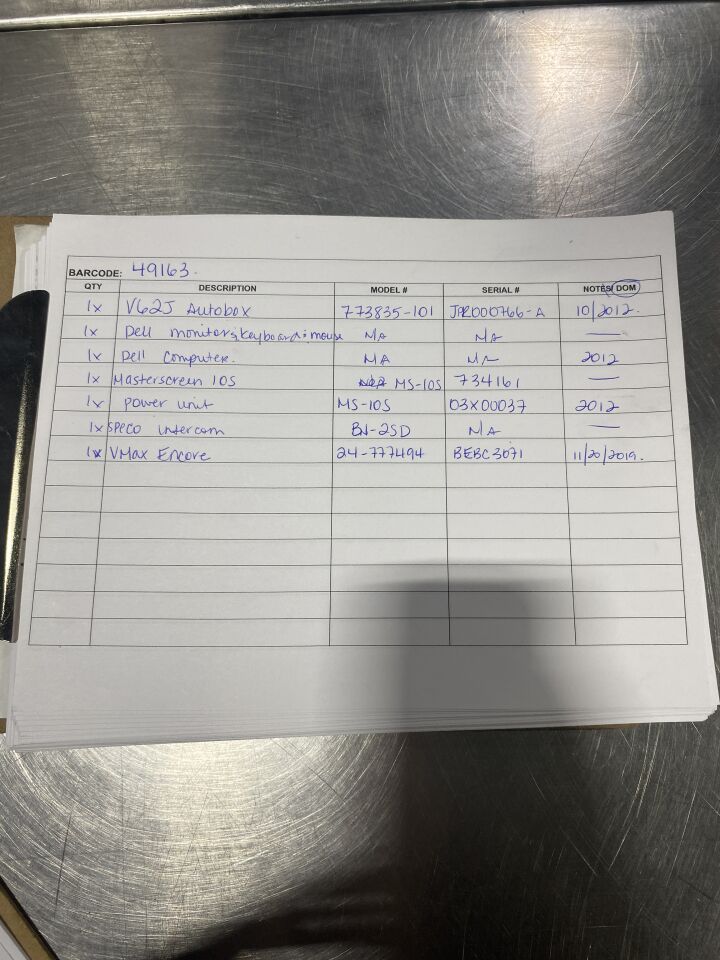 BARCODE: 49163.
QTY DESCRIPTION MODEL # SERIAL # NOTES/ DOM
1x V62J Autobox 773835-101 JPR000766-A 10/2012.
1x Dell monitor, keyboard + mouse NA NA —
1x Dell Computer. NA NA 2012
1x Masterscreen IOS MS-IOS 734161 —
1x power unit MS-IOS 03X00037 2012
1x SPECO intercom BN-2SD NA —
1x VMax Encore 24-777494 BEBC3071 11/20/2019.